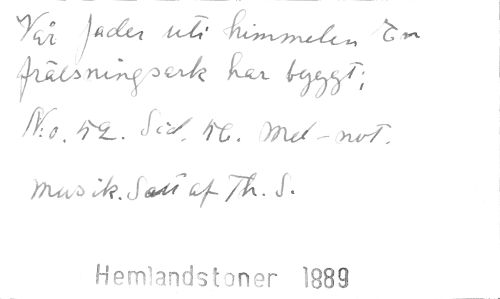 Vår fader uti himmelen En
frälsningsark har byggt;
N:o. 52. Sid. 56. Med-not.
musik. Satt af Th. S.
Hemlandstoner 1889